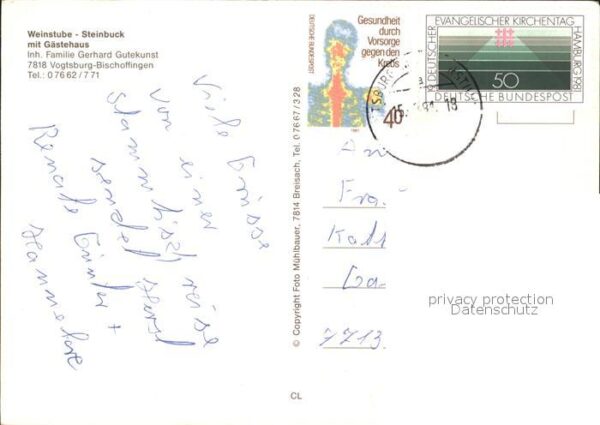 Weinstube - Steinbuck
mit Gästehaus
Inh. Familie Gerhard Gutekunst
7818 Vogtsburg-Bischoffingen
Tel.: 0 76 62 / 7 71
Viele Grüsse
von einer
Stammtischreise
sendet Horst
Renate Günter +
Hannelore
© Copyright Foto Mühlbauer, 7814 Breisach, Tel. 0 76 67 / 3 28
CL
DEUTSCHE BUNDESPOST
Gesundheit
durch
Vorsorge
gegen den
Krebs
40
1981
19. DEUTSCHER EVANGELISCHER KIRCHENTAG HAMBURG 1981
50
DEUTSCHE BUNDESPOST
An
Fra.
Kat
Ga
7713
privacy protection
Datenschutz